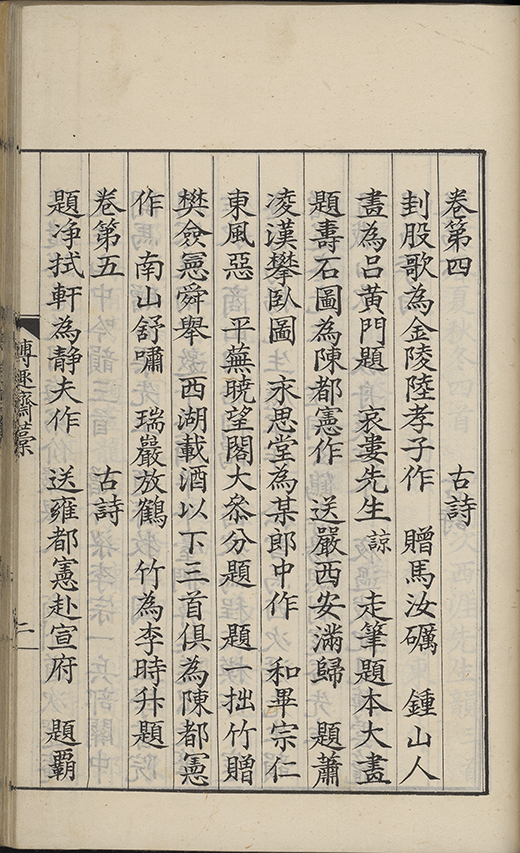 卷第四 古詩
刲股歌為金陵陸孝子作 贈馬汝礪 鍾山人
畫為呂黃門題 哀婁先生諒 走筆題本大畫
題壽石圖為陳都憲作 送嚴西安滿歸 題蕭
凌漢攀臥圖 永思堂為某郎中作 和畢宗仁
東風惡 平蕪曉望閣大叅分題 題一拙竹贈
樊僉憲舜舉 西湖載酒以下三首俱為陳都憲
作 南山舒嘯 瑞巖放鶴 竹為李時升題
卷第五 古詩
題净拭軒為静夫作 送雍都憲赴宣府 題霸
博趣齋藁
二